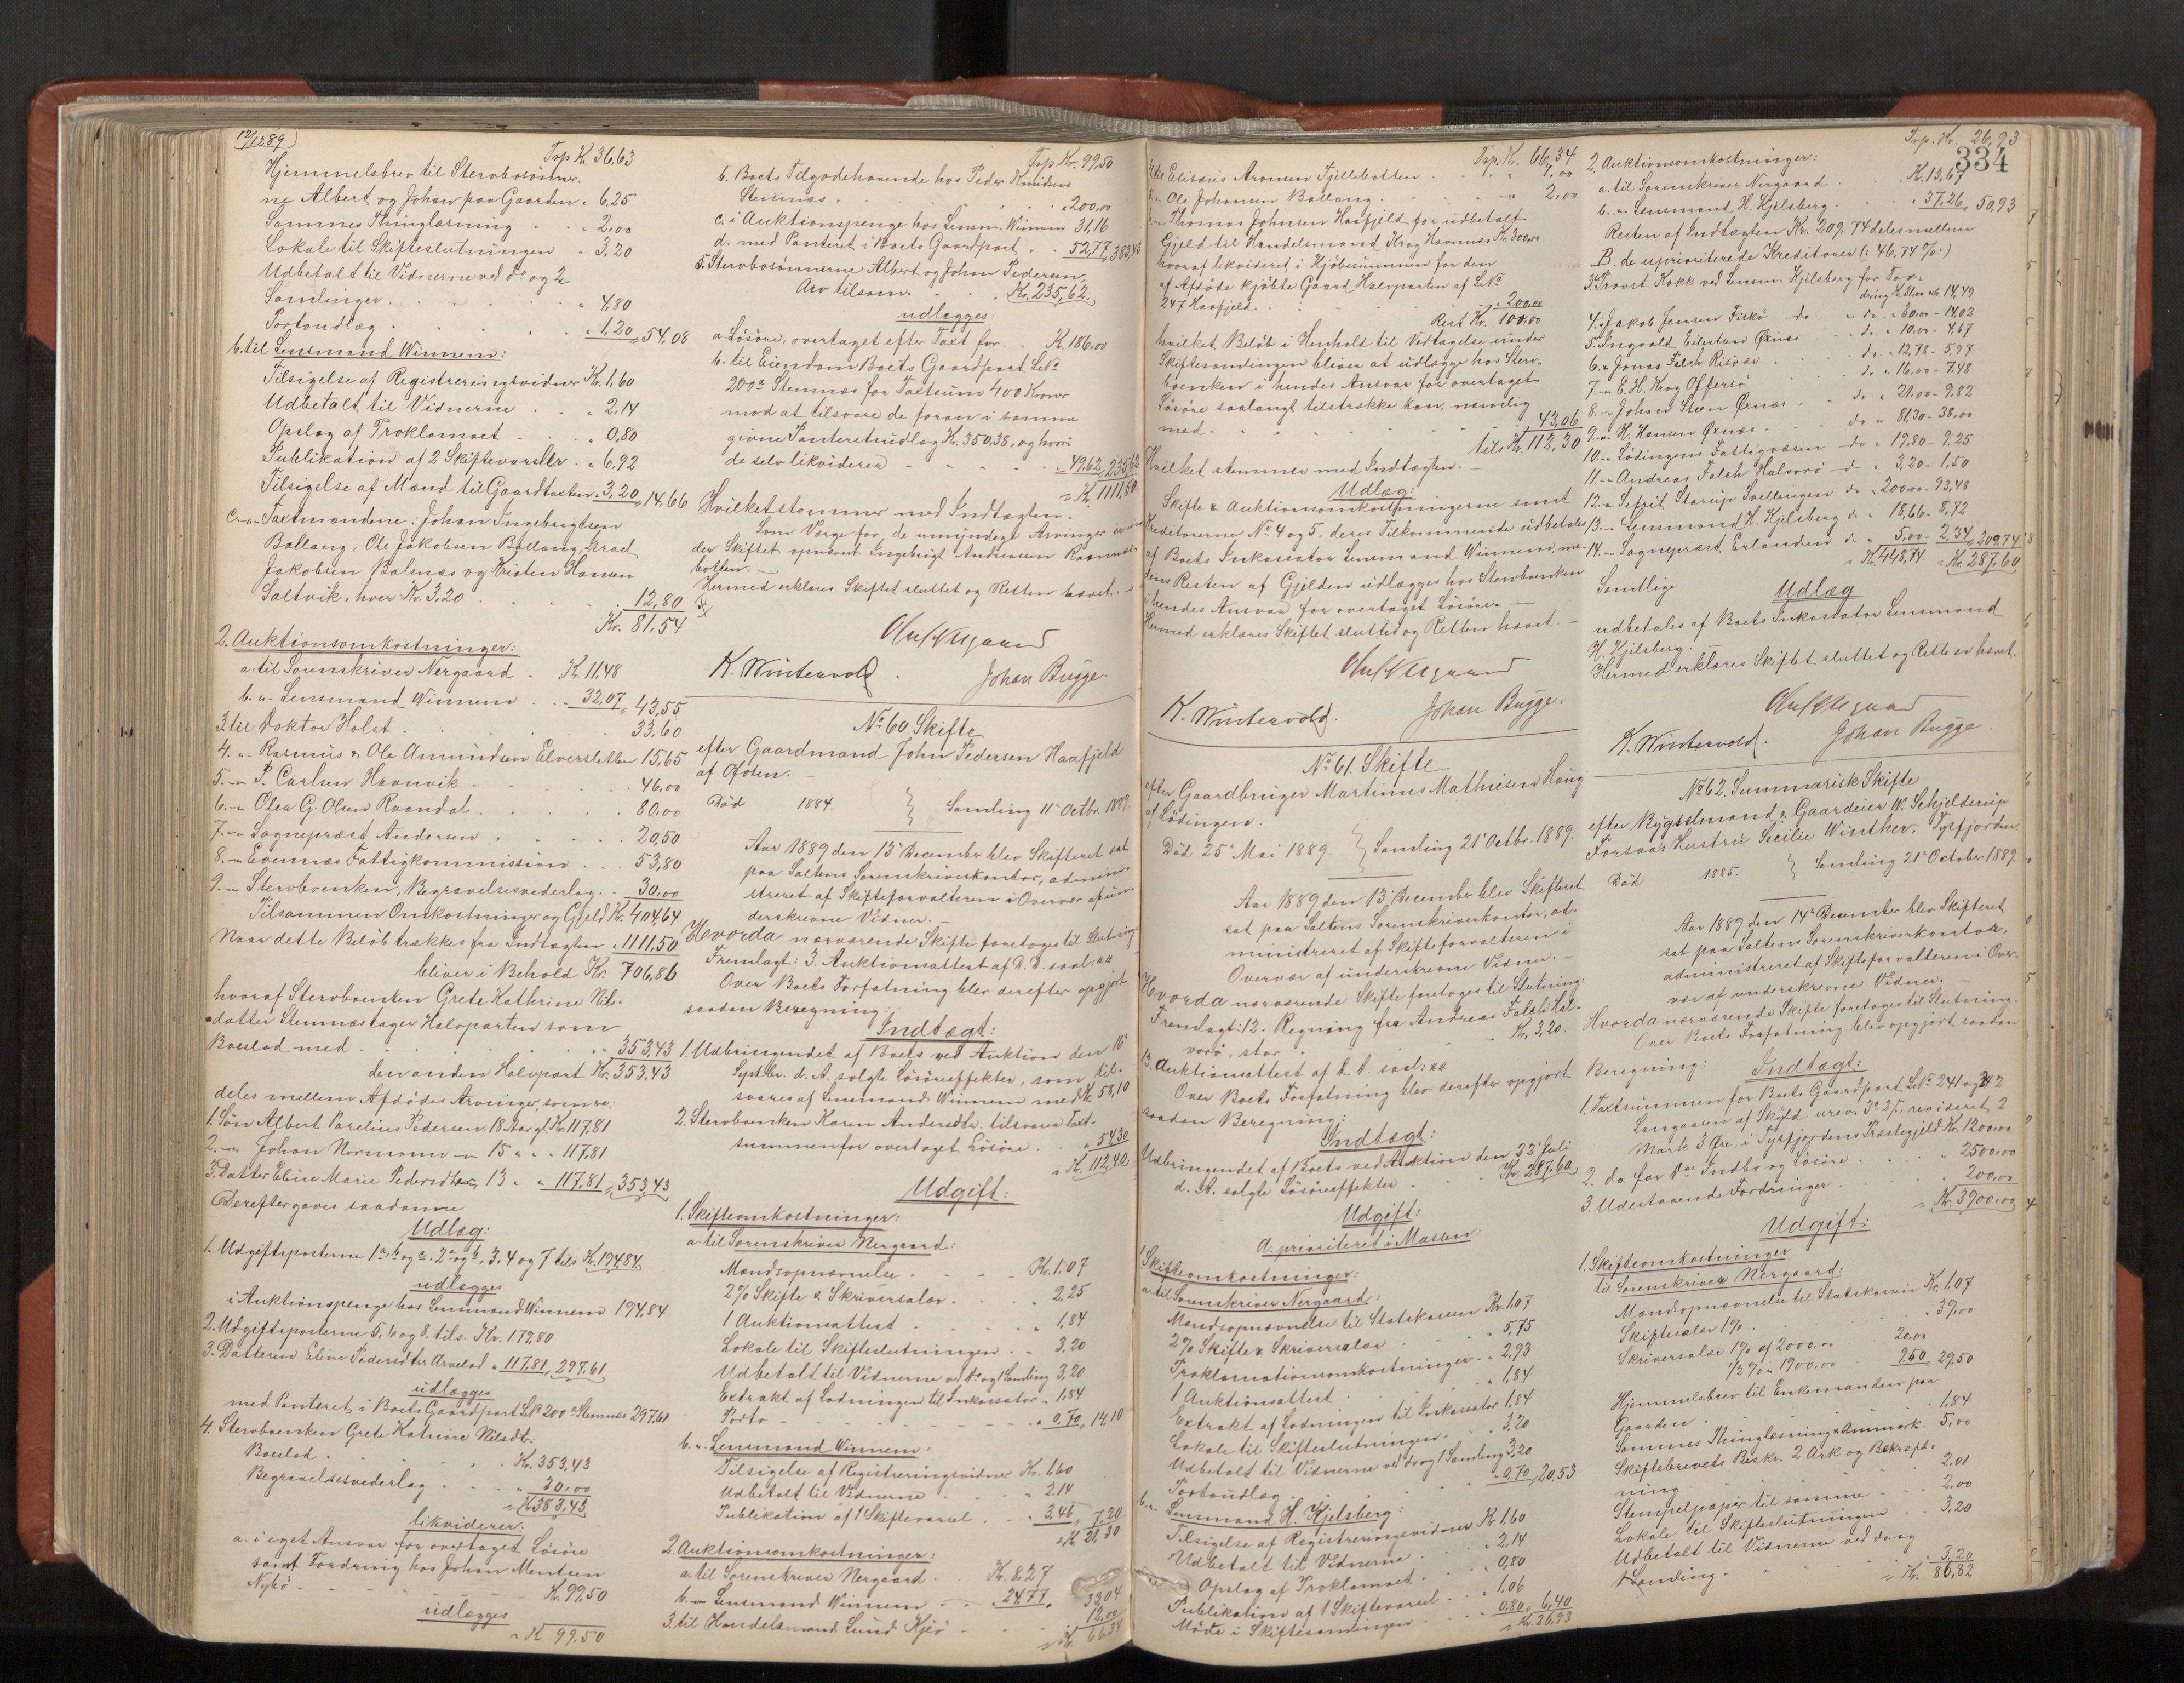 12/12 89)
Trp Kr. 36,63
Hjemmelsbrev til Stervbosønner-
ne Albert og Johan paa Gaarden „ 6,25
Sammes Thinglæsning „ 2,00
Lokale til Skifteslutningen „ 3,20
Udbetalt til Vidnerne ved do og 2
Samlinger „ 4,80
Portoudlæg „ 1,20 „ 54,08
b. til Lensmand Winnem:
Tilsigelse af Registreringsvidner Kr. 1,60
Udbetalt til Vidnerne „ 2,14
Opslag af Proklamaet „ 0,80
Publikation af 2 Skiftevarsler „ 6,92
Tilsigelse af Mænd til Gaardtaxten „ 3,20 „ 14,66
c. „ Taxtmændene: Johan Ingebrigtsen
Ballang, Ole Jakobsen Ballang, Israel
Jakobsen Balnæs og Kristen Hansen
Saltvik, hver Kr. 3,20 12,80
Kr. 81,54
2. Auktionsomkostninger:
a. til Sorenskriver Nergaard Kr. 11,48
b. „ Lensmand Winnem „ 32,07 „ 43,55
3. til Doktor Holst 33,60
4. „ Rasmus & Ole Amundsen Elversletten 15,65
5. „ P. Carlsen Havnvik 46,00
6. „ Olea G. Olsen Raandal 80,00
7. „ Sognepræst Andersen 20,50
8. „ Evennæs Fattigkommission 53,80
9. „ Stervboenken, Begravelsesvederlag 30,00
Tilsammen Omkostninger og Gjeld Kr. 404,64
Naar dette Beløb trækkes fra Indtægten „ 1111,50
bliver i Behold Kr. 706,86
hvoraf Stervboenken Grete Kathrine Nils-
datter Stemnæs tager Halvparten som
Boeslod med „ 353,43
den anden Halvpart Kr. 353,43
deles mellem Afdødes Arvinger, som er:
1. Søn Albert Parelius Pedersen, 18 Aar gl. Kr. 117,81
2. „ Johan Normann „ 15 „ „ „ 117,81
3. Datter Eline Marie Pedersdtr, 13 „ „ 117,81 „ 353,43
Derefter gaves saadanne
Udlæg:
1. Udgiftsposterne 1 a, b og c, 2 a og b, 3, 4 og 7 tils. Kr. 194,84
udlægges
i Auktionspenge hos Lensmand Winnem 194,84
2. Udgiftsposterne 5, 6 og 8, tils. Kr. 179,80
3. Datteren Eline Pedersdtr Arvelod „ 117,81 „ 297,61
udlægges
med Panteret i Boets Gaardpart LNo 200 a Stemnæs 297,61
4. Stervboenken Grete Katrine Nilsdtr:
Boeslod Kr. 353,43
Begravelsesvederlag „ 30,00
Kr. 383,43
likviderer:
a. i eget Ansvar for overtaget Løsøre
samt Fordring hos Johan Mentsen
Nybø Kr. 99,50
udlægges
Kr. 99,50
Trp. Kr. 99,50
b. Boets Tilgodehavende hos Peder Knudsen
Stemnæs „ 200,00
c. i Auktionspenge hos Lensm. Winnem 31,16
d. med Panteret i Boets Gaardpart „ 52,77 „ 383,43
5. Stervbosønnerne Albert og Johan Pedersen
Arv tilsam. Kr. 235,62
udlægges:
a. Løsøre, overtaget efter Taxt for Kr. 186,00
b. til Eiendom Boets Gaardpart LNo
200 a Stemnæs for Taxtsum 400 Kroner
mod at tilsvare de foran i samme
givne Panteretsudlæg Kr. 350,38, og hvori
de selv likviderer „ 49,62 „ 235,62
Kr. 1111,50
Hvilket stemmer med Indtægten.
Som Værge for de umyndige Arvinger er un-
der Skiftet opnævnt Ingebrigt Andersen Raanes-
botten.
Hermed erklæres Skiftet sluttet og Retten hævet.
Ol. Nergaard
K. Wintervold. Johan Bugge.
No 60 Skifte
efter Gaardmand John Pedersen Haafjeld
af Ofoten.
Død 1884. } Samling 11 Octbr. 1889.
Aar 1889 den 13 December blev Skifteret sat
paa Saltens Sorenskriverkontor, admini-
streret af Skifteforvalteren i Overvær af un-
derskrevne Vidner.
Hvorda nærværende Skifte foretoges til Slutning
Fremlagt: 3. Auktionsattest af D. D. saal: **
Over Boets Forfatning blev derefter opgjort
saadan Beregning:
Indtægt:
1. Udbringendet af Boets ved Auktion den 16
Septbr. d. A. solgte Løsøreeffekter, som til-
svares af Lensmand Winnem med Kr. 58,10
2. Stervboenken Karen Andersdtr. tilsvarer Taxt-
summen for overtaget Løsøre „ 54,30
Kr. 112,40
Udgift:
1. Skifteomkostninger:
a. til Sorenskriver Nergaard:
Mandsopnævnelse Kr. 1,07
2% Skifte & Skriversalær 2,25
1 Auktionsattest „ 1,84
Lokale til Skifteslutningen „ 3,20
Udbetalt til Vidnerne v. do og 1 Samling 3,20
Extrakt af Lodningen til Inkassator „ 1,84
Porto „ 0,70 „ 14,10
b. „ Lensmand Winnem:
Tilsigelse af Registreringsvidner Kr. 1,60
Udbetalt til Vidnerne „ 2,14
Publikation af 1 Skiftevarsel „ 3,46 „ 7,20
Kr. 21,30
2. Auktionsomkostninger:
a. til Sorenskriver Nergaard Kr. 8,27
b. „ Lensmand Winnem „ 24,77 „ 33,04
3. til Handelsmand Lund Kjeø 12,00
Kr. 66,34
Trp. Kr. 66,34
4. til Elisæus Aronsen Fjellebotten „ 1,00
5. „ Ole Johansen Ballang „ 2,00
„ Thomas Johnsen Haafjeld for udbetalt
Gjeld til Handelsmand Krog Havnnæs Kr. 300,00
hvoraf likvideret i Kjøbesummen for den
af Afdøde kjøbte Gaard Halvparten af LNo
247 Haafjeld „ 200,00
Rest Kr. 100,00
hvilket Beløb i Henhold til Vedtagelse under
Skiftesamlingen bliver at udlægge hos Sterv-
boenken i hendes Ansvar for overtaget
Løsøre saalangt tilstrække kan, nemlig
med 43,06
tils. Kr. 112,30
Hvilket stemmer med Indtægten.
Udlæg:
Skifte & Auktionsomkostningerne samt
Kreditorerne No 4 og 5, deres Tilkommende udbetales
af Boets Inkassator Lensmand Winnem, me-
dens Resten af Gjelden udlægges hos Stervboenken
i hendes Ansvar for overtaget Løsøre.
Hermed erklæres Skiftet sluttet og Retten hævet.
Ol. Nergaard
K. Wintervold. Johan Bugge.
No 61. Skifte
efter Gaardbruger Martinus Mathisen Haug
af Lødingen.
Død 25 Mai 1889. } Samling 21 Octbr. 1889.
Aar 1889 den 13 December blev Skifteret
sat paa Saltens Sorenskriverkontor, ad-
ministreret af Skifteforvalteren i
Overvær af underskrevne Vidner.
Hvorda nærværende Skifte foretoges til Slutning:
Fremlagt: 12. Regning fra Andreas Falch Hal-
varø, stor Kr. 3,20.
13. Auktionsattest af D. D. saal: **
Over Boets Forfatning blev derefter opgjort
saadan Beregning:
Indtægt:
Udbringendet af Boets ved Auktion den 22 Juli
d. A. solgte Løsøreeffekter Kr. 287,60
Udgift:
A. prioriteret i Massen:
1. Skifteomkostninger:
a. til Sorenskriver Nergaard:
Mandsopnævnelse til Statskassen Kr. 1,07
2% Skifte & Skriversalær „ 5,75
Proklamationsomkostninger „ 2,93
1 Auktionsattest „ 1,84
Extrakt af Lodningen til Inkassator 1,84
Lokale til Skifteslutningen „ 3,20
Udbetalt til Vidnerne ved do og 1 Samling 3,20
Portoudlæg „ 0,70 „ 20,53
b. „ Lensmand H. Kjelsberg:
Tilsigelse af Registreringsvidner Kr. 1,60
Udbetalt til Vidnerne „ 2,14
Opslag af Proklamaet „ 0,80
Publikation af 1 Skiftevarsel „ 1,06
Møde i Skiftesamlingen „ 0,80 „ 6,40
Kr. 26,93
334
Trp. Kr. 26,93
2. Auktionsomkostninger:
a. til Sorenskriver Nergaard Kr. 13,67
b. „ Lensmand H. Kjelsberg „ 37,26 „ 50,93
Resten af Indtægten Kr. 209,74 deles mellem
B. de uprioriterede Kreditorer (: 46,74 %:)
3. Provst Kokk ved Lensm. Kjelsberg for For-
dring Kr. 31,00 Kr. 14,49
4. „ Jakob Jensen Fiskø do. „ do. „ 30,00 - 14,02
5. „ Ingvald Eilertsen Øxnæs do. „ 10,00 - 4,67
6. „ Jonas Falch Risvær do. „ 12,78 - 5,97
7. „ E. H. Krog Offersø do. „ 16,00 - 7,48
8. „ Johan Steen Øxnæs do. „ 21,00 - 9,82
9. „ H. Hansen Øxnæs do. „ 81,30 - 38,00
10. „ Lødingens Fattigvæsen do „ 19,80 - 9,25
11. „ Andreas Falch Halvarø do „ 3,20 - 1,50
12. „ Sefrit Starup Svellingen do „ 200,00 - 93,48
13. „ Lensmand H. Kjelsberg do „ 18,66 - 8,72
14. „ Sognepræst Erlandsen do „ 5,00 - 2,34 „ 209,74
Kr. 448,74 Kr. 287,60
Samtlige Udlæg
udbetales af Boets Inkassator Lensmand
H. Kjelsberg.
Hermed erklæres Skiftet sluttet og Retten hævet.
Ol. Nergaard
K. Wintervold. Johan Bugge
No 62. Summarisk Skifte
efter Bygselmand & Gaardeier W. Schjelderup
Forsaas Hustru Secilie Winther, Tysfjorden.
Død 1885. } Samling 21 October 1889.
Aar 1889 den 14 December blev Skifteret
sat paa Saltens Sorenskriverkontor,
administreret af Skifteforvalteren i Over-
vær af underskrevne Vidner.
Hvorda nærværende Skifte foretoges til Slutning.
Over Boets Forfatning blev opgjort saadan
Beregning: Indtægt:
1. Taxtsummen for Boets Gaardpart LNo 241 og 242
af Skyld urev. revideret 2
Mark 3 Øre i Tysfjordens Præstegjeld Kr. 1200,00
2. do. for do. Indbo og Løsøre „ 2500,00
3. Udestaaende Fordringer „ 200,00
Kr. 3900,00
Udgift:
1. Skifteomkostninger
til Sorenskriver Nergaard:
Mandsopnævnelse til Statskassen Kr. 1,07
Skiftesalær 1% „ 39,00
Skriversalær 1% af 2000,00 20,00
1/2 % „ 1900,00 9,50 „ 29,50
Hjemmelsbrev til Enkemanden paa
Gaarden 1,84
Sammes Thinglæsning & Anmærk. 5,00
Skiftebrevets Beskr. 2 Ark og Bekræft-
ning 2,01
Stempelpapir til samme „ 2,00
Lokale til Skifteslutningen „ 3,20
Udbetalt til Vidnerne ved do og
1 Samling „ 3,20
Kr. 86,82